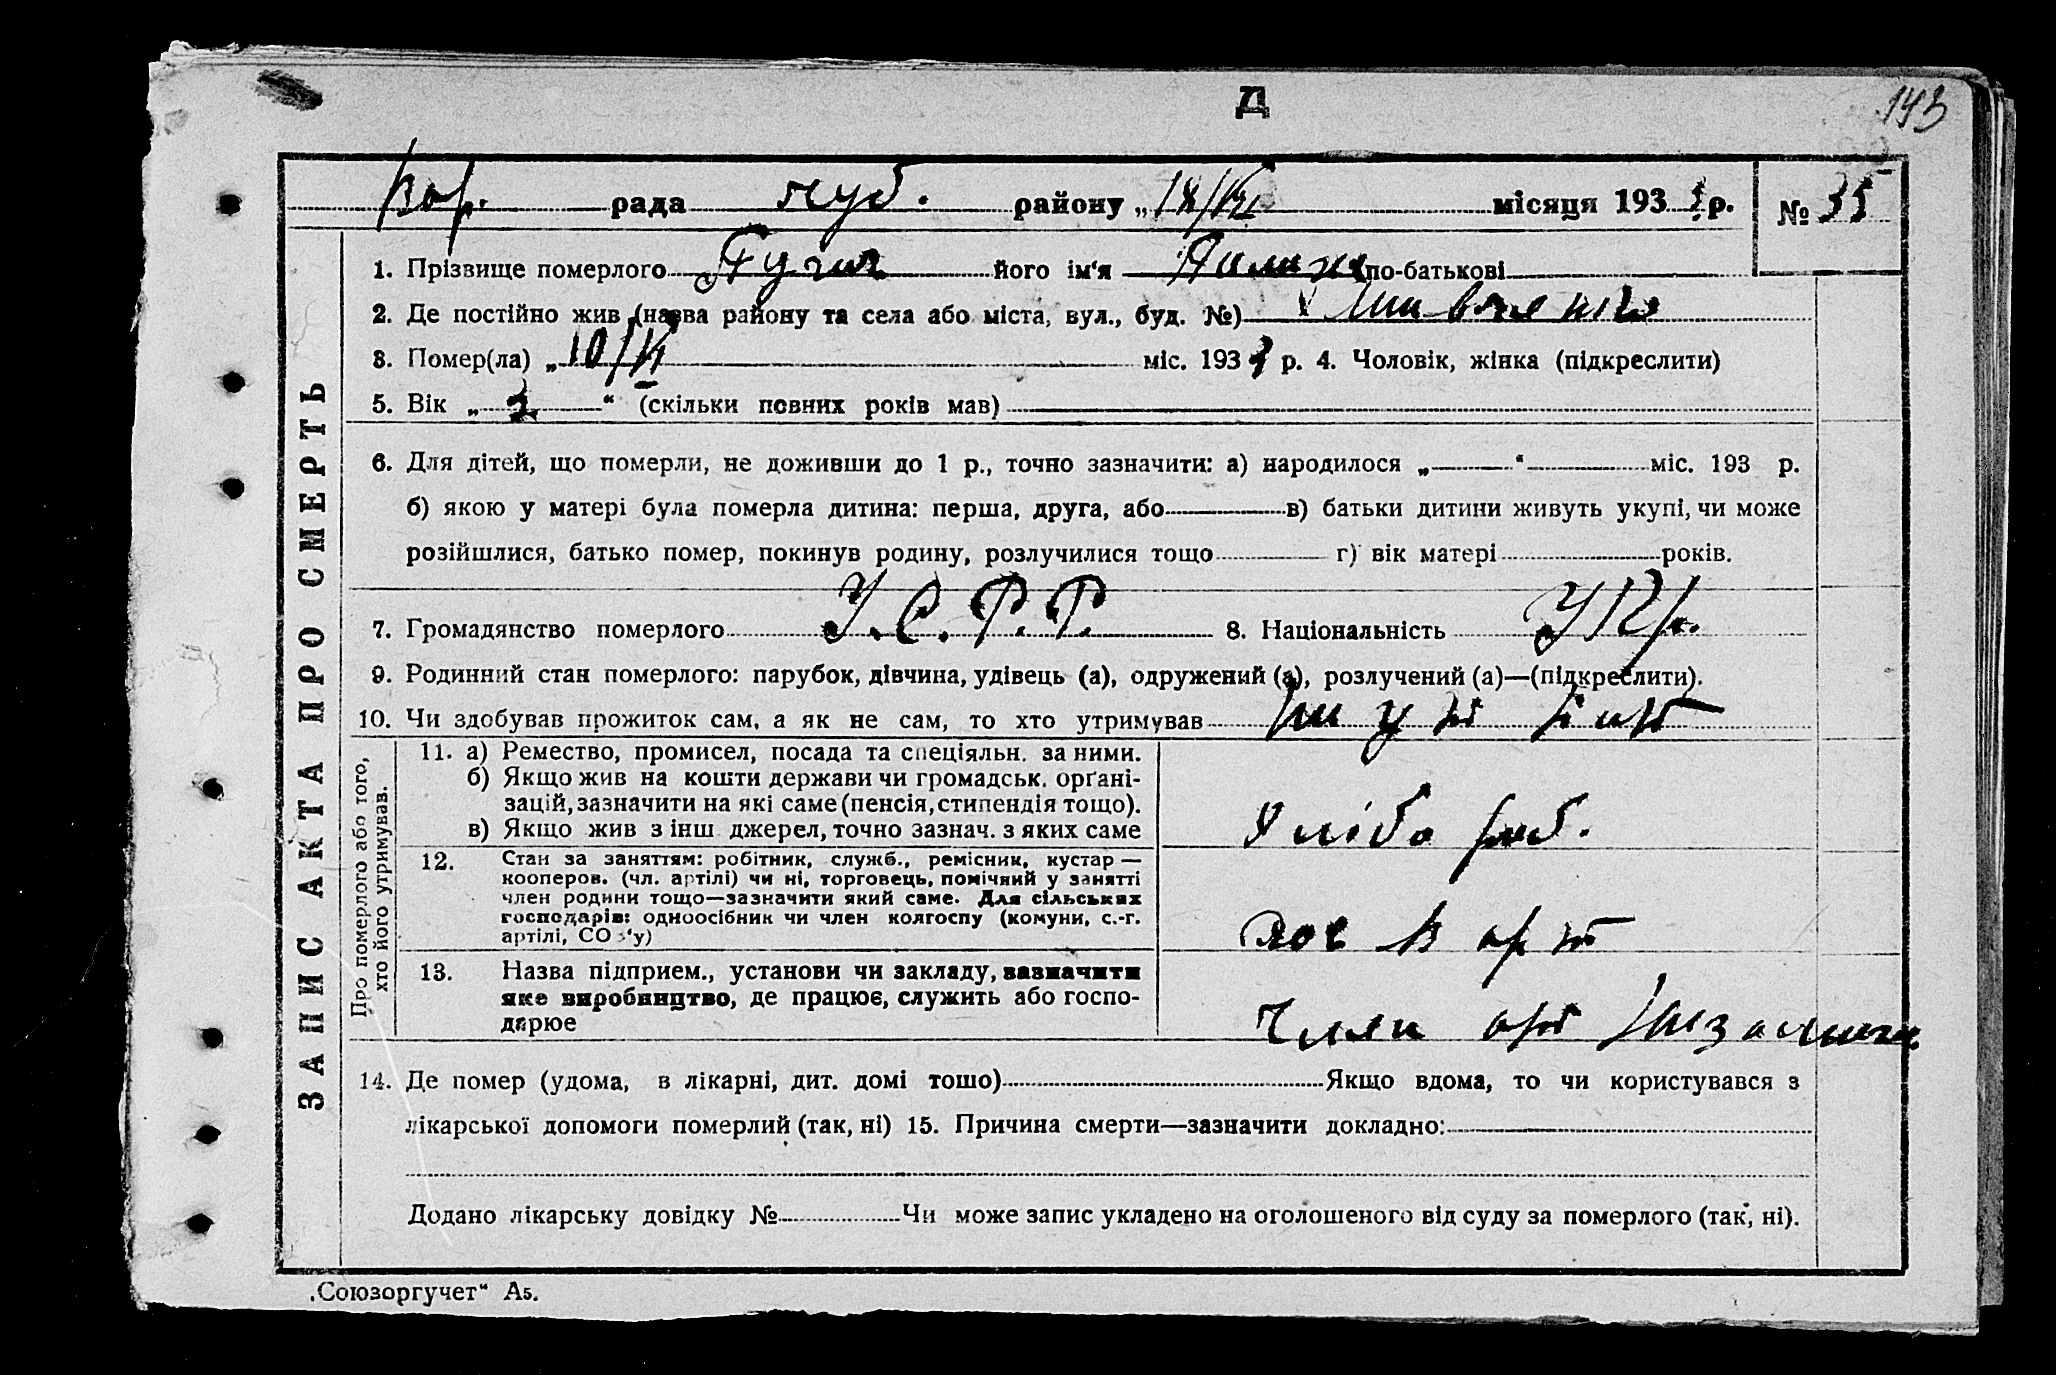 Д
143
Вор. рада чуб. району „18/VI місяця 1933 р. № 35
1. Прізвище померлого його ім'я по-батькові
2. Де постійно жив (назва району та села або міста, вул., буд. №)
3. Помер(ла) „10/VI міс. 1933 р. 4. Чоловік, жінка (підкреслити)
5. Вік „2“ (скільки повних років мав)
6. Для дітей, що померли, не доживши до 1 р., точно зазначити: а) народилося „ “ міс. 193 р.
б) якою у матері була померла дитина: перша, друга, або в) батьки дитини живуть укупі, чи може
розійшлися, батько помер, покинув родину, розлучилися тощо г) вік матері років.
7. Громадянство померлого У.С.Р.Р. 8. Національність Укр.
9. Родинний стан померлого: парубок, дівчина, удівець (а), одружений (а), розлучений (а)—(підкреслити).
10. Чи здобував прожиток сам, а як не сам, то хто утримував
ЗАПИС АКТА ПРО СМЕРТЬ
Про померлого або того,
хто його утримував.
11. а) Ремество, промисел, посада та спеціяльн. за ними.
б) Якщо жив на кошти держави чи громадськ. орґані-
зацій, зазначити на які саме (пенсія, стипендія тощо).
в) Якщо жив з інш джерел, точно зазнач. з яких саме
хлібороб.
12. Стан за заняттям: робітник, служб., ремісник, кустар —
кооперов. (чл. артілі) чи ні, торговець, помічний у занятті
член родини тощо—зазначити який саме. Для сільських
господарів: одноосібник чи член колгоспу (комуни, с.-г.
артілі, СО у)
арт
13. Назва підприєм., установи чи закладу, зазначити
яке виробництво, де працює, служить або госпо-
дарює
член арт
14. Де помер (удома, в лікарні, дит. домі тошо) Якщо вдома, то чи користувався з
лікарської допомоги померлий (так, ні) 15. Причина смерти—зазначити докладно:
Додано лікарську довідку № Чи може запис укладено на оголошеного від суду за померлого (так, ні).
„Союзоргучет“ А5.